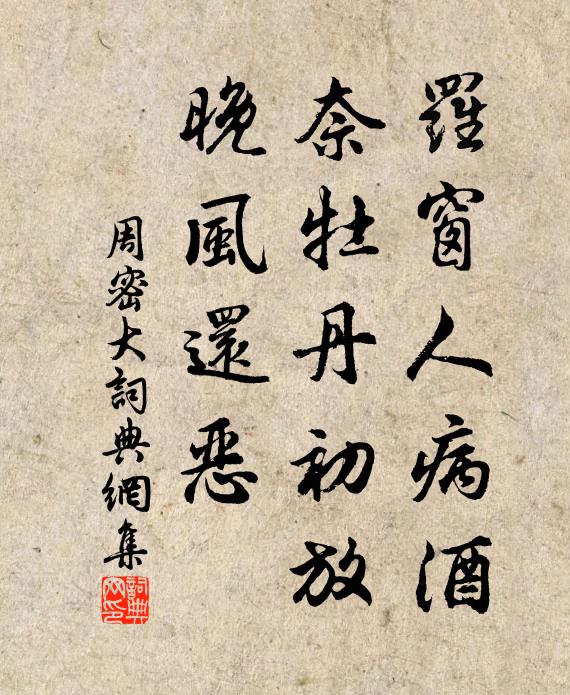 羅窗人病酒
奈牡丹初放
晚風還惡
周密大詞典網集
詞典网印